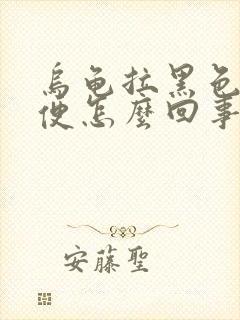 烏龜拉黑色
便怎麼回事
安藤聖